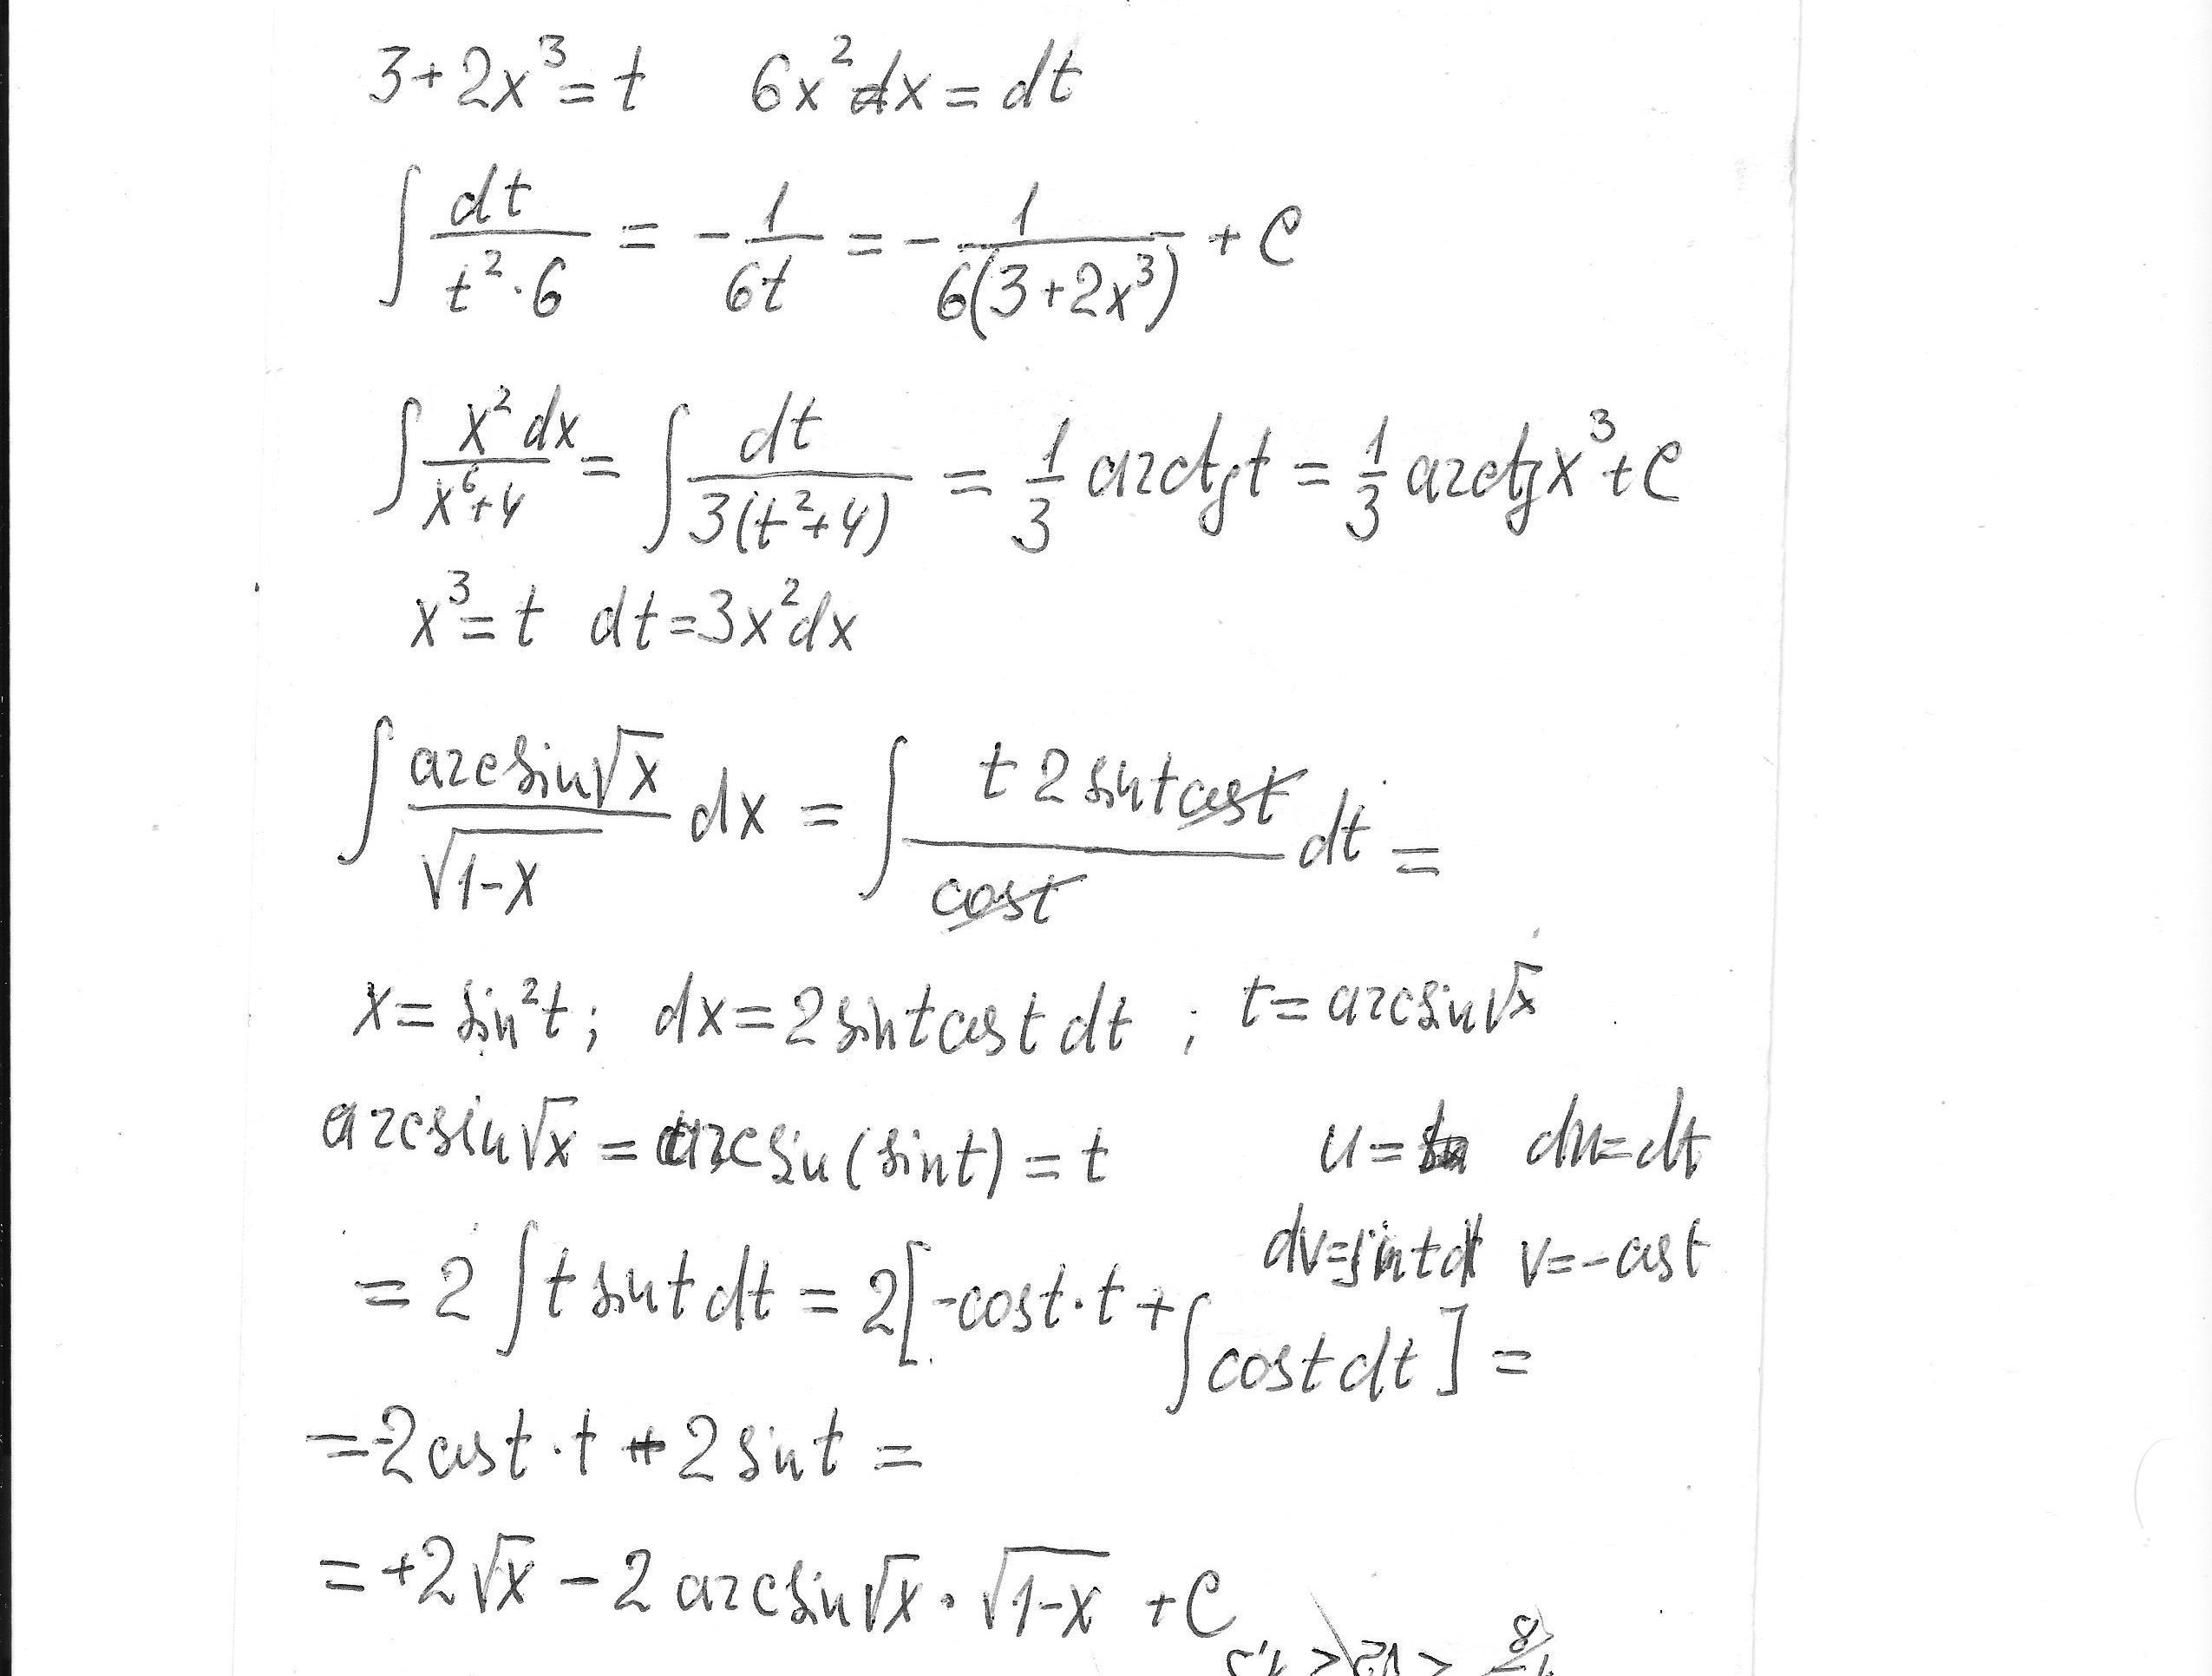 3+2x³=t 6x²dx=dt
∫ dt/(t²·6) = -1/(6t) = -1/(6(3+2x³)) + C
∫ x²dx/(x⁶+4) = ∫ dt/(3(t²+4)) = 1/3 arctg t = 1/3 arctg x³ + C
x³=t dt=3x²dx
∫ arcsin√x/√(1-x) dx = ∫ t 2 sin t cos t/cos t dt =
x = sin²t; dx = 2 sin t cos t dt ; t = arcsin√x
arcsin√x = arcsin(sin t) = t u= du=dt
dv=sin t dt v=-cos t
= 2 ∫ t sin t dt = 2[-cos t·t + ∫ cos t dt] =
= -2 cos t·t + 2 sin t =
= +2√x - 2 arcsin√x · √(1-x) + C